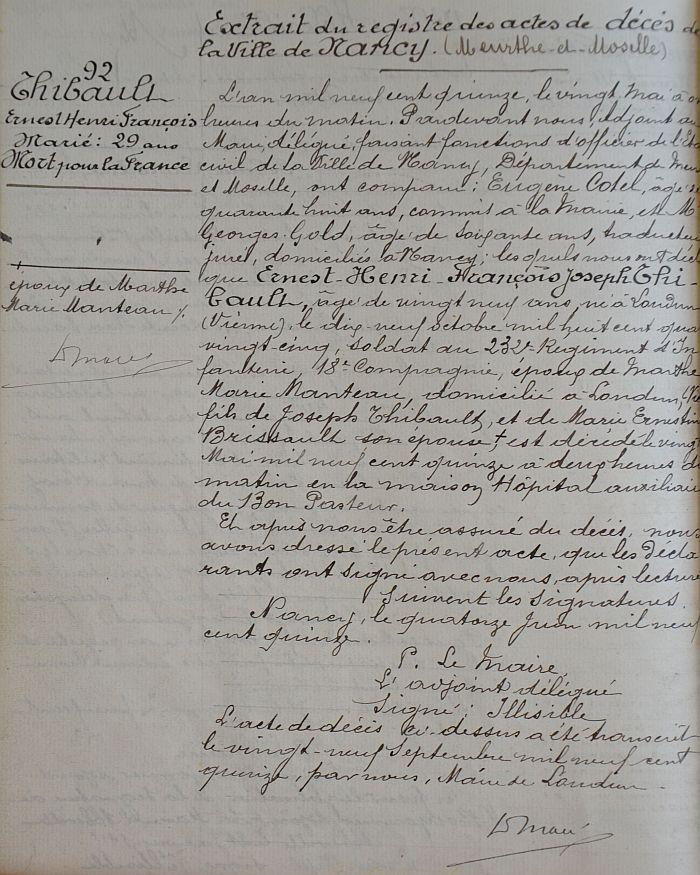 Extrait du registre des actes de décès de
la Ville de Nancy. (Meurthe-et-Moselle)
92
Thibault
Ernest Henri François
Marié : 29 ans
Mort pour la France
époux de Marthe
Marie Manteau
L'an mil neuf cent quinze, le vingt Mai à
heures du matin. Pardevant nous, Adjoint au
Maire, délégué, faisant fonctions d'officier de l'Éta
civil de la Ville de Nancy, Département de Meur
et Moselle, ont comparu : Eugène Cotel, âgé de
quarante huit ans, commis à la Mairie, et M
Georges Gold, âgé de soixante ans, traducteur
juré, domiciliés à Nancy; lesquels nous ont décl
que Ernest-Henri-François Joseph Thi-
bault, âgé de vingt neuf ans, né à Loudun
(Vienne), le dix-neuf octobre mil huit cent qua
vingt-cinq, soldat au 232e Régiment d'In
fanterie, 18e Compagnie, époux de Marthe
Marie Manteau, domicilié à Loudun, (Vie
fils de Joseph Thibault, et de Marie Ernestin
Brissault son épouse † est décédé le vingt
Mai mil neuf cent quinze à deux heures du
matin en la maison, Hôpital auxiliaire
du Bon Pasteur.
Et après nous être assuré du décès, nous
avons dressé le présent acte, que les décla
rants ont signé avec nous, après lecture
Suivent les signatures.
Nancy, le quatorze Juin mil neuf
cent quinze.
P. Le Maire,
L'adjoint délégué
Signé : Illisible
L'acte de décès ci-dessus a été transcrit
le vingt-neuf Septembre mil neuf cent
quinze, par nous, Maire de Loudun.